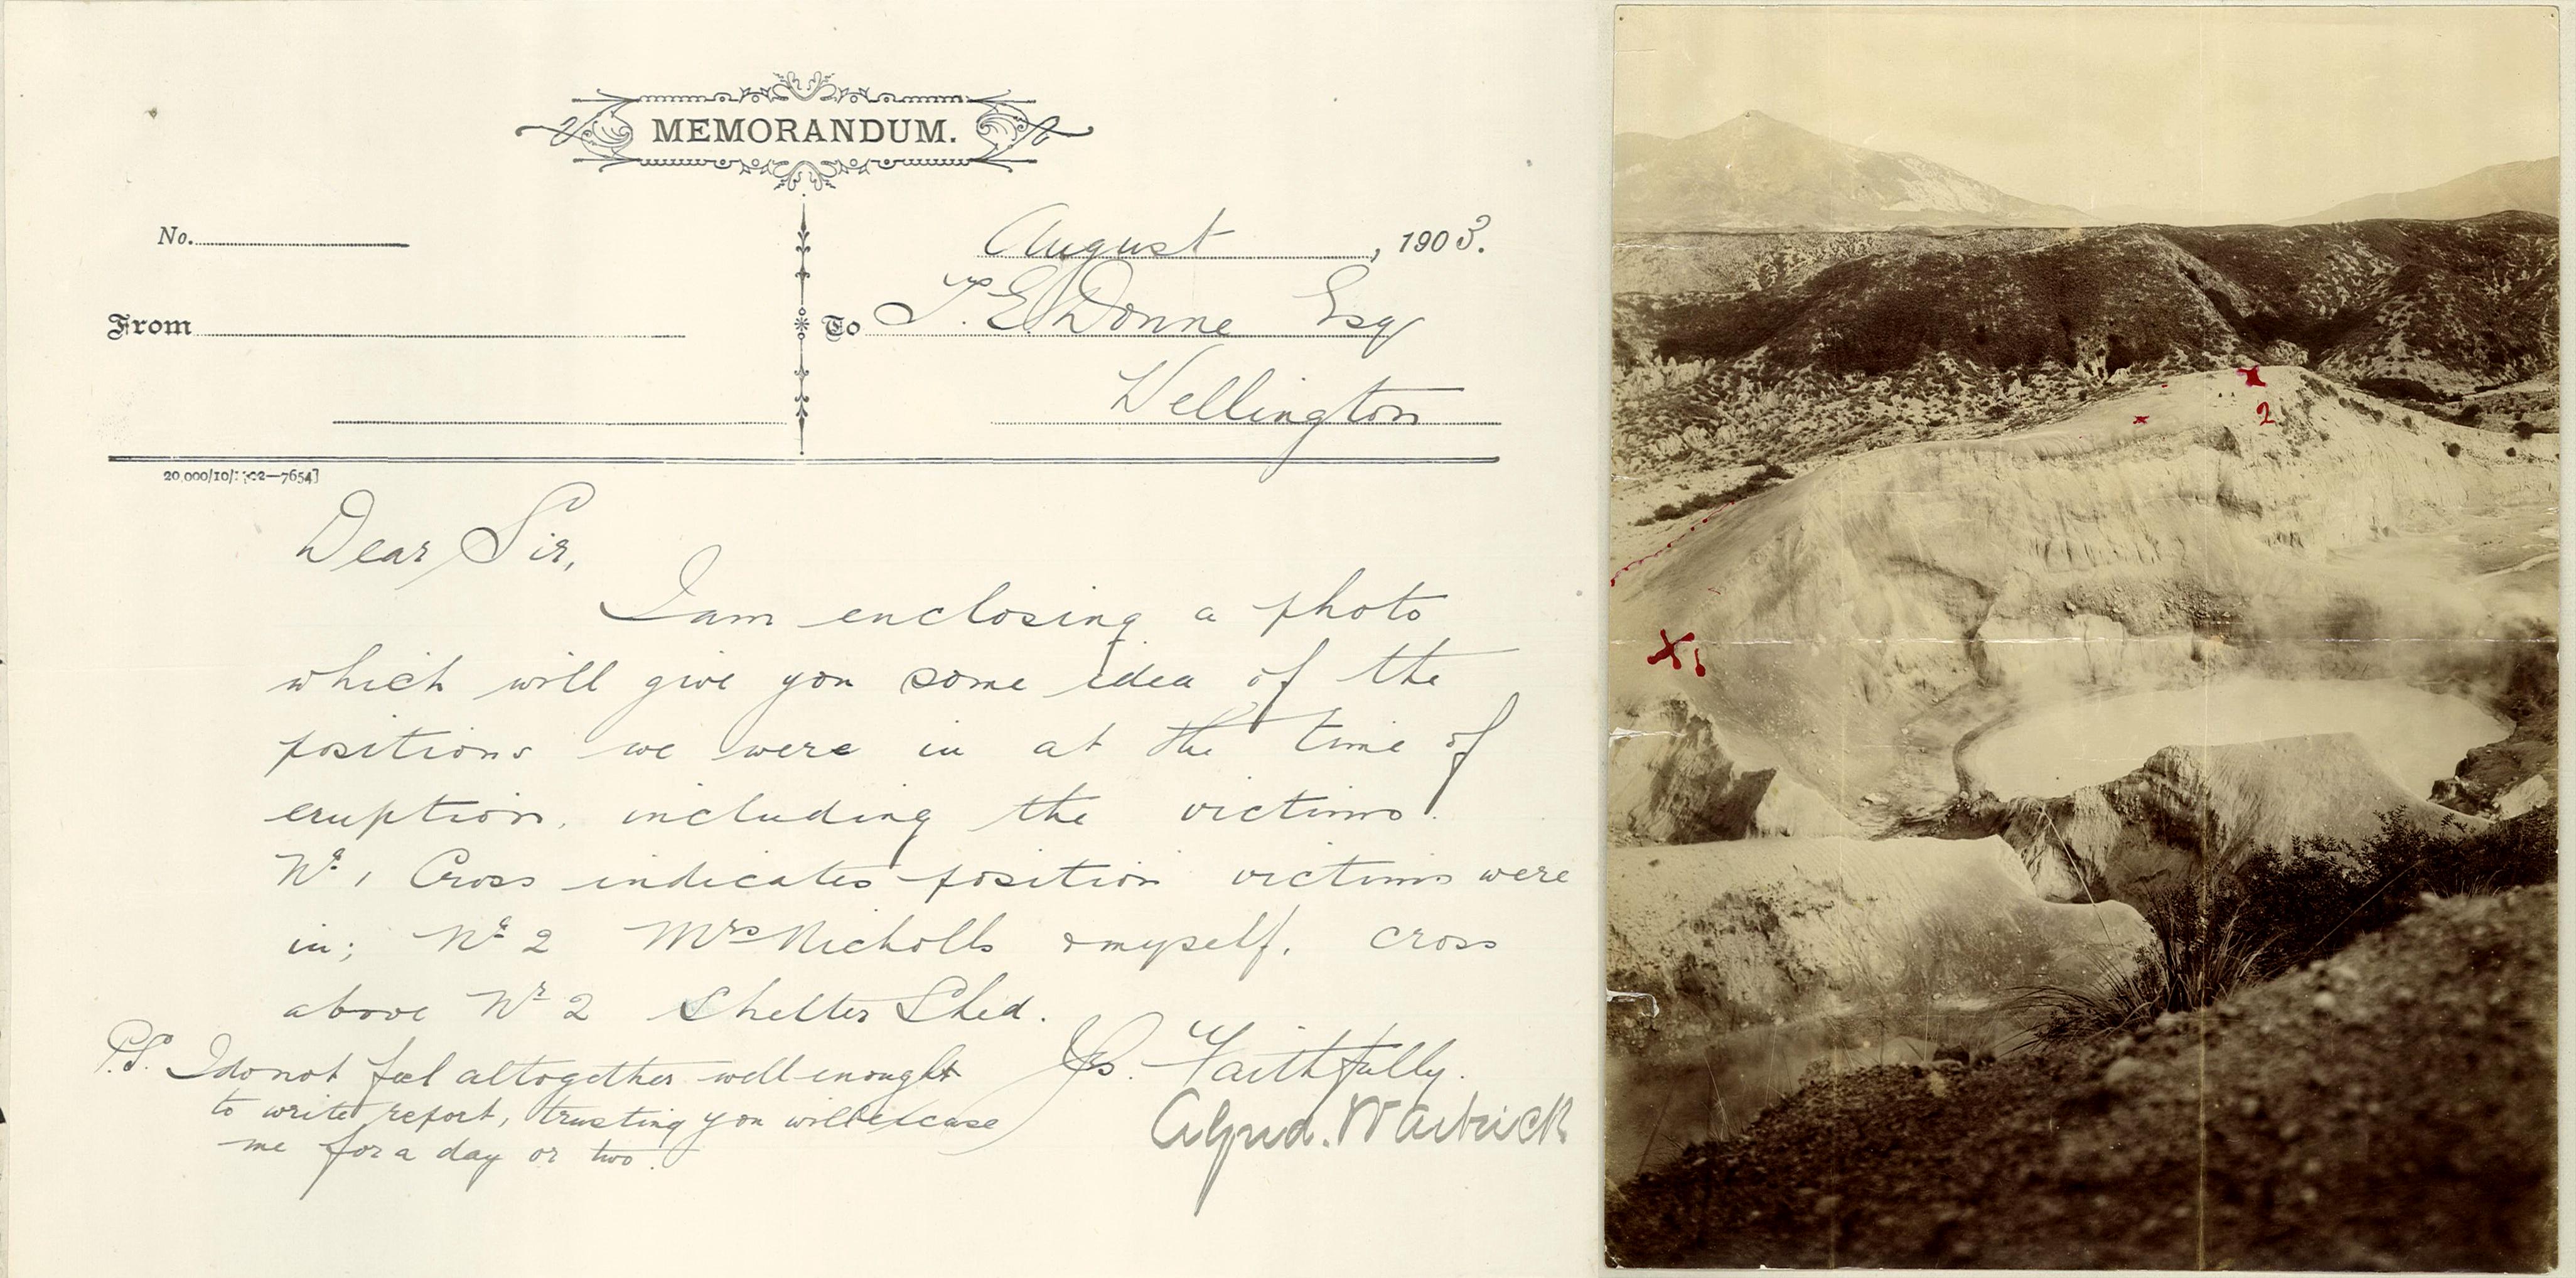 MEMORANDUM.
No.
August, 1903.
From
To T. E. Donne Esq
Wellington
20,000/10/1902—7654]
Dear Sir,
I am enclosing a photo
which will give you some idea of the
positions we were in at the time of
eruption, including the victims.
No. 1 Cross indicates position victims were
in; No. 2 Mrs Nicholls & myself. cross
above No. 2 Shelter Shed.
Yrs. Faithfully.
Alfred. Warbrick
P.S. I do not feel altogether well enough
to write report, trusting you will excuse
me for a day or two.
2
1